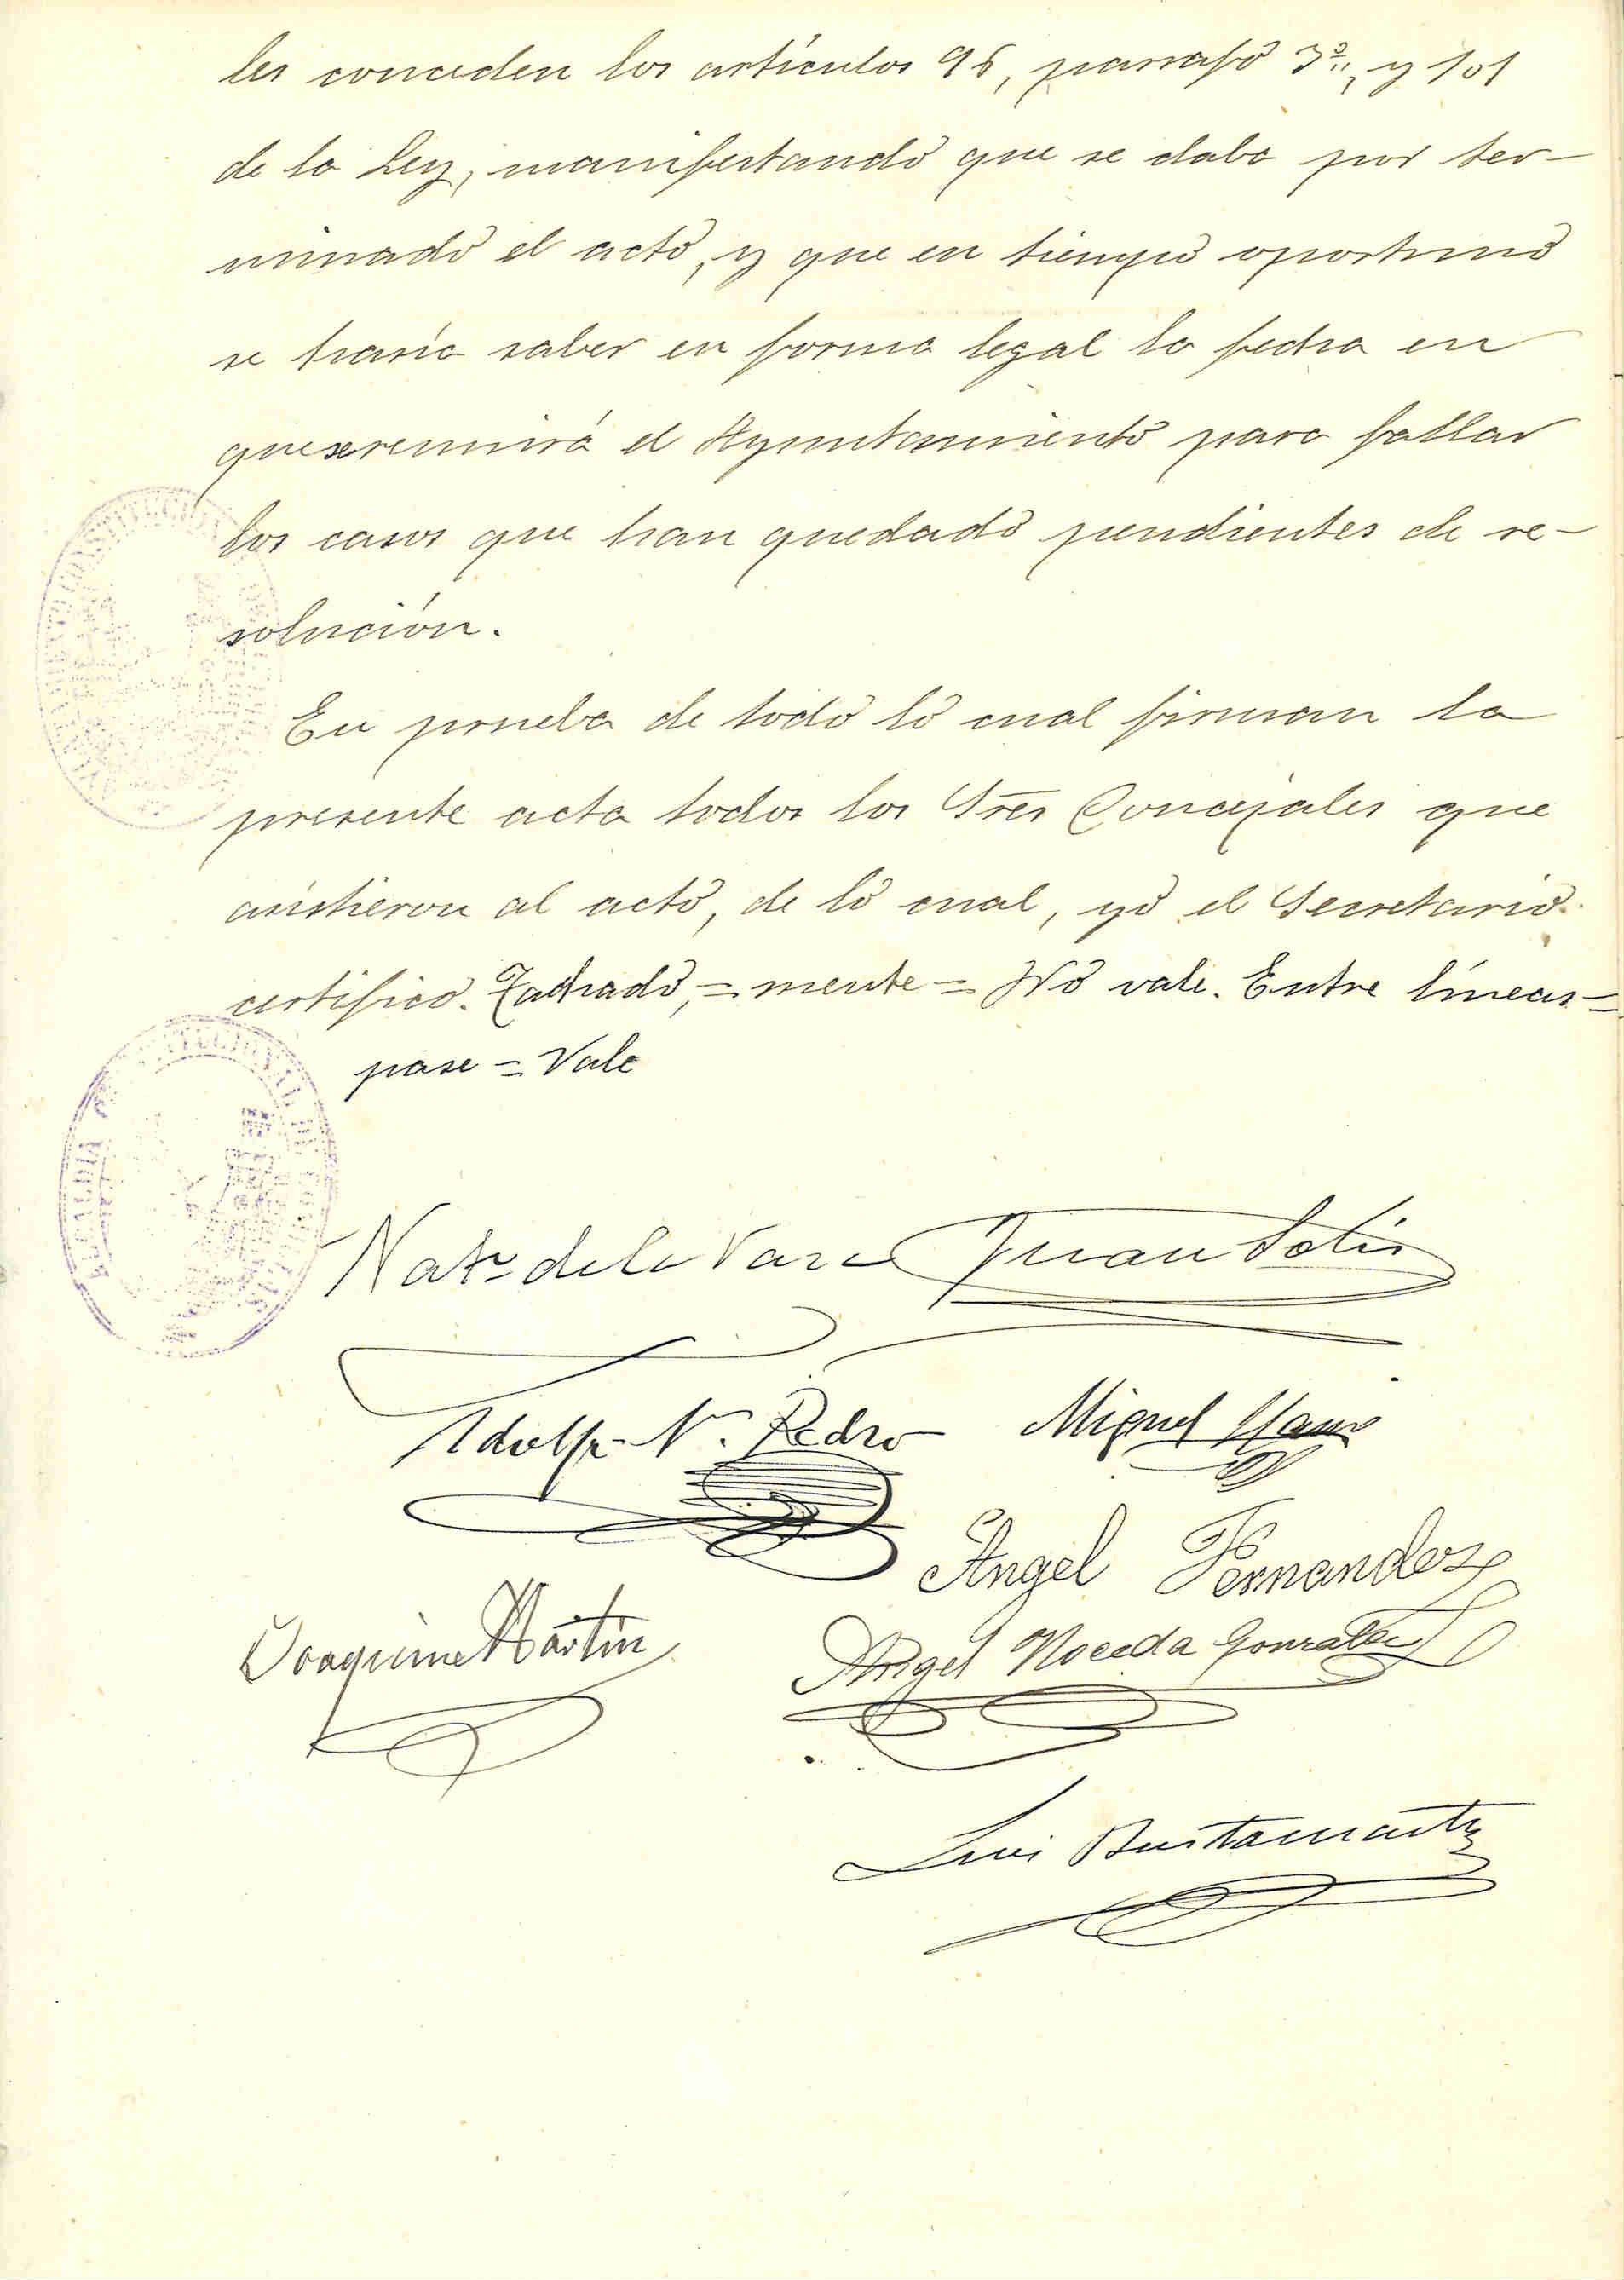 les conceden los artículos 96, parrafo 3º, y 101
de la Ley, manifestando que se daba por ter-
minado el acto, y que en tiempo oportuno
se haría saber en forma legal la fecha en
que se reunirá el Ayuntamiento para fallar
los casos que han quedado pendientes de re-
solución.
En prueba de todo lo cual firman la
presente acta todos los Sres Concejales que
asistieron al acto, de lo cual, yo el Secretario
certifico. Tachado, = mente = No vale. Entre líneas =
pase = Vale
ALCALDIA
Nat. de la Vara Juan Solis
Adolfo N. Pedro Miguel
Angel Fernandez
Joaquin Martin
Angel Noceda Gonzalez
Luis Bustamante